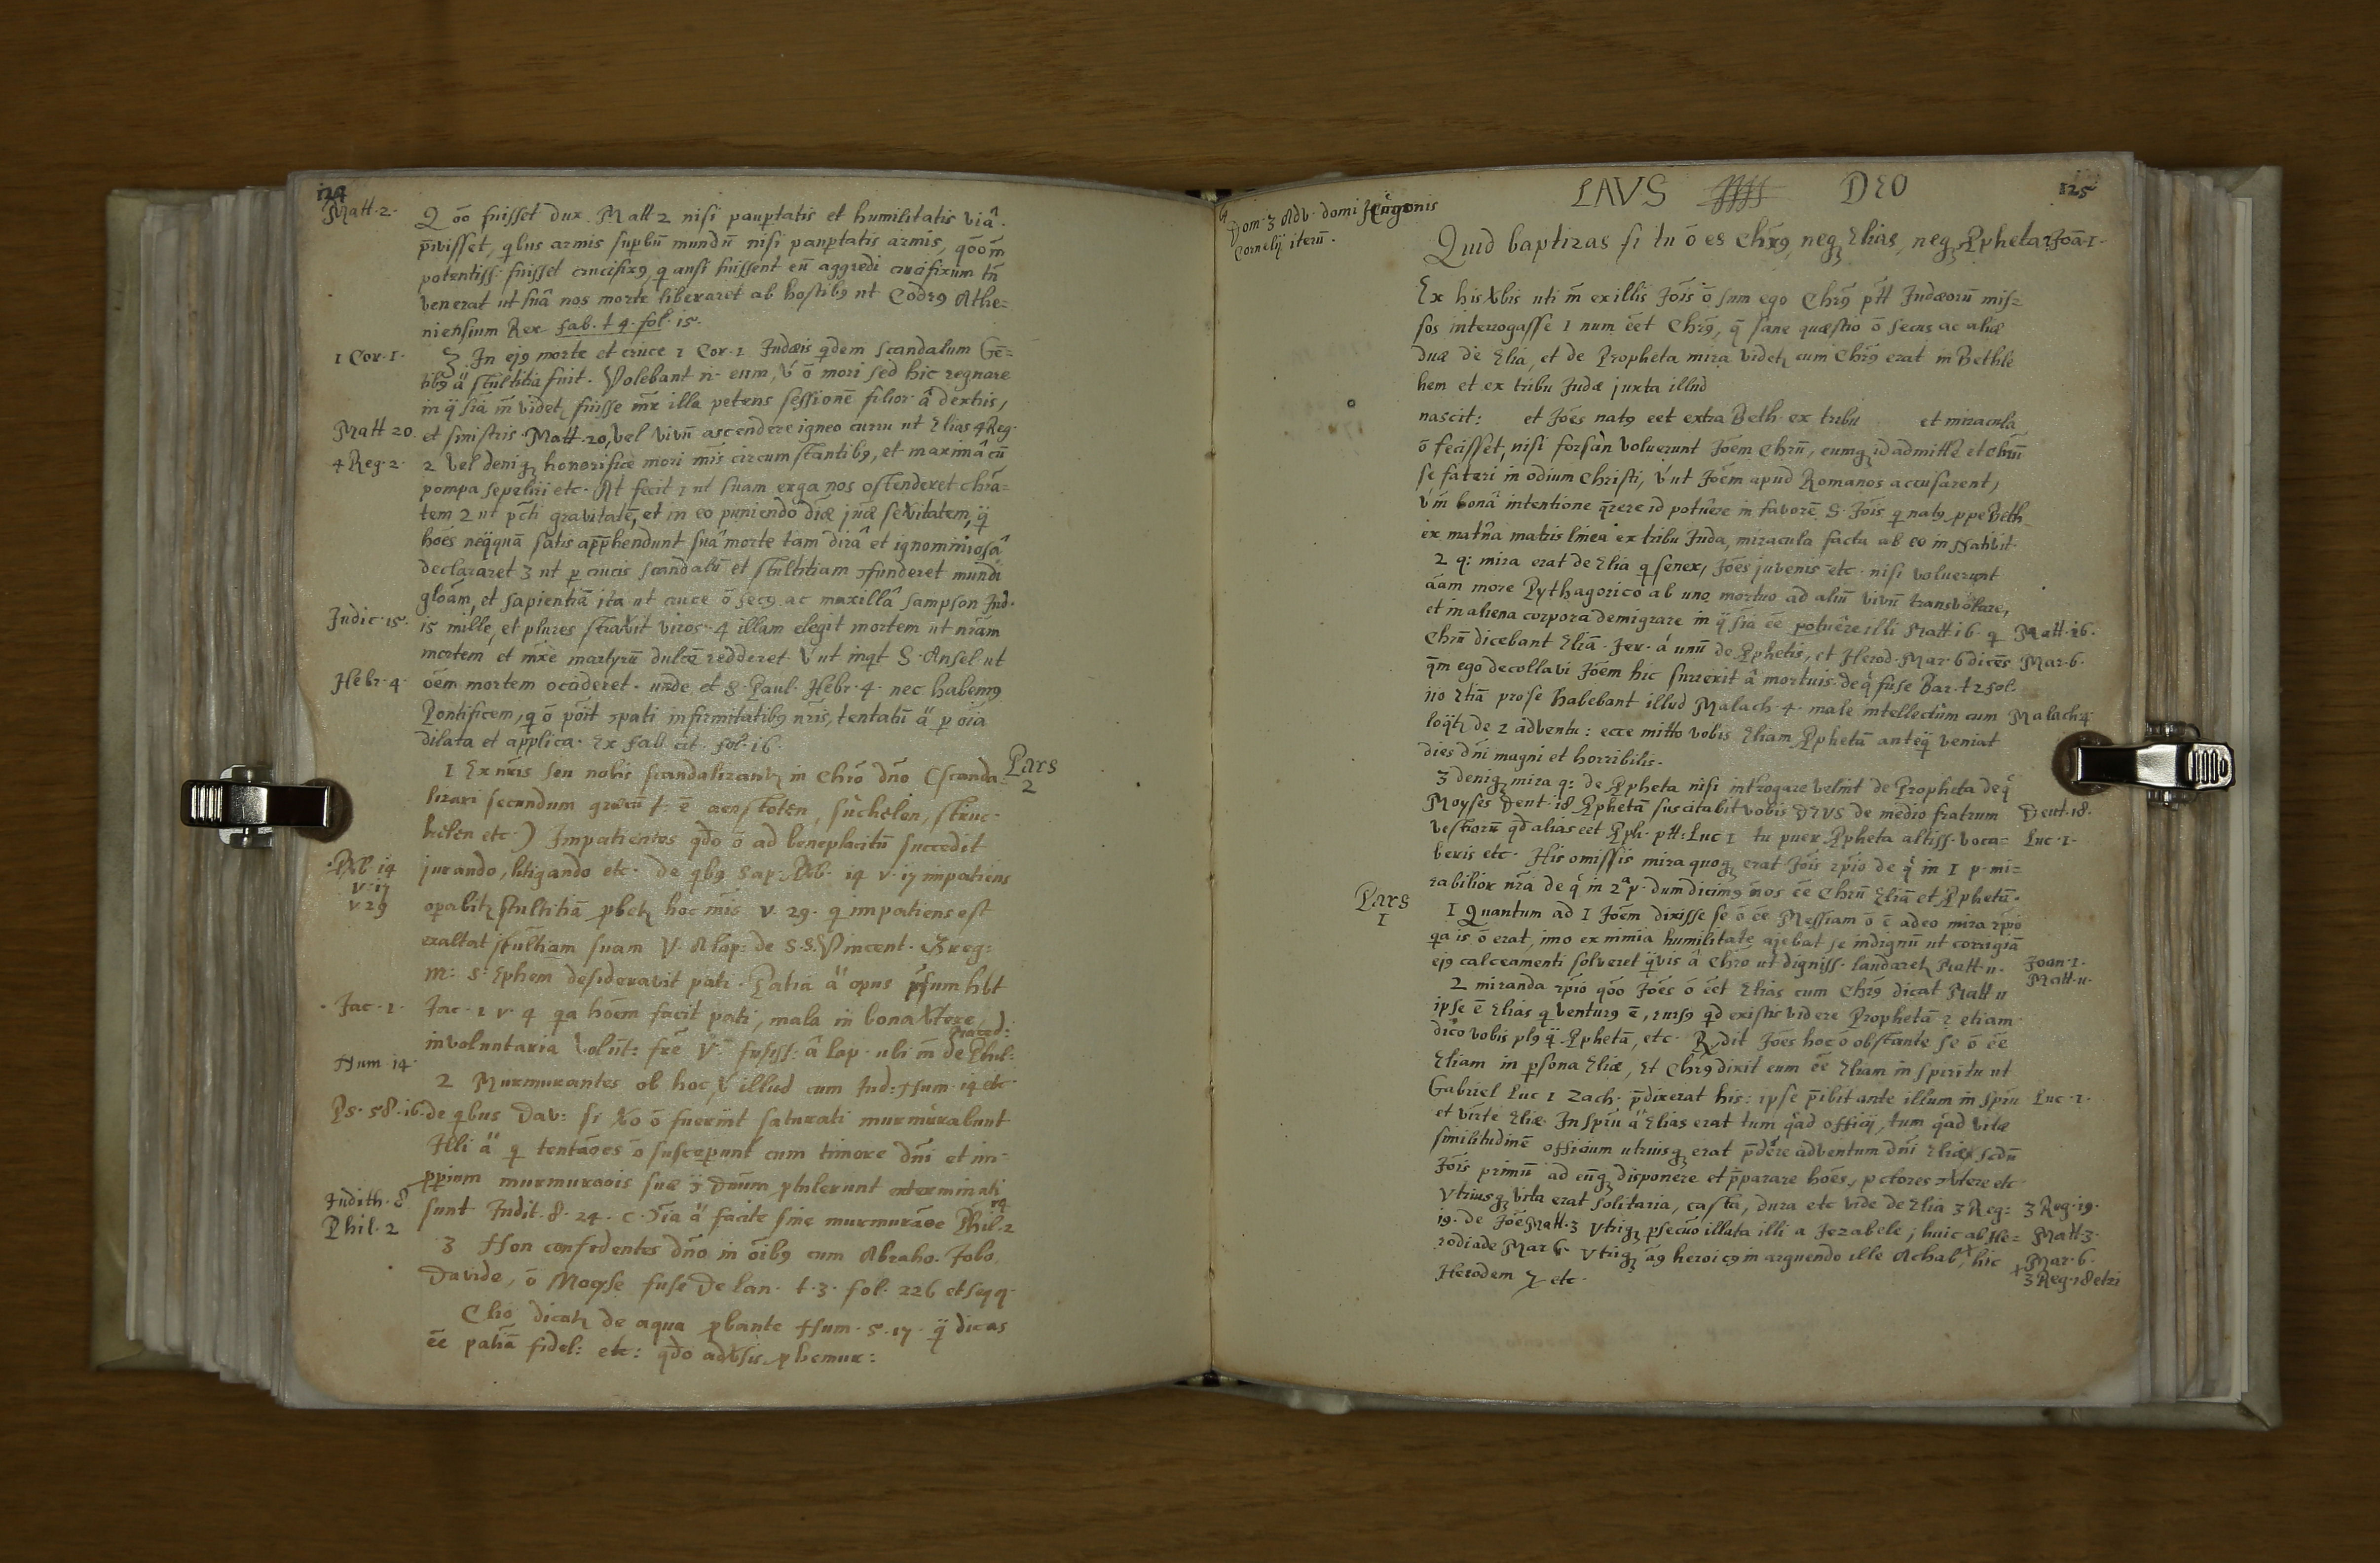 124
Matt·2· Q ōo fuisset dux Matt 2 nisi pauptatis et humilitatis viâ·
p̄ivisset, qbus armis supbū mundū nisi pauptatis armis, qōom̄
potentiss· fuisset crucifix9, q ausi fuissent eū aggredi crucifixum tn̄
venerat ut suâ nos morte liberaret ab hostib9 ut Codr9 Athe=
niensium Rex fab· t 4· fol· 15·
1 Cor·1· 3 In ej9 morte et cruce 1 Cor·1 Judæis qdem scandalum Gē=
tib9 a͏̈ stultitia fuit· Volebant n· eum, v́ ō mori sed hic regnare
in q͏̈ sīa m̄ videtꝫ fuisse mr̄ illa petens sessionē filior· â dextris,
Matt 20 et sinistris Matt·20, vel vivū ascendere igneo curru ut Elias 4 Reg·
4 Reg·2· 2 vel deniqꝫ honorifice mori mīs circumstantib9, et maximâ cū
pompa sepeliri etc· At fecit 1 ut suam erga nos ostenderet chrā=
tem 2 ut pc̄ti gravitatē, et in eo puniendo diæ juæ sevitatem, q͏̈
hōes neqquā satis app̄hendunt suâ morte tam dirâ et ignominiosâ
declararet 3 ut p crucis scandalū et stultitiam ꝯfunderet mundi
glōam, et sapientiā ita ut cruce ō sec9 ac maxillâ Sampson Jud·
Judic·15· 15 mille, et plures stravit viros· 4 illam elegit mortem ut nrām
mortem et mx̄e martyrū dulcē redderet· V́ ut inqt S· Ansel ut
Hebr·4· ōem mortem occideret· unde et S· Paul· Hebr·4· nec habem9
Pontificem, q ō pōit ꝯpati infirmitatib9 nr̄is, tentatū a͏̈ p oīa
dilata et applica· Ex fab cit· fol·16·
Pars 2
1 Ex nr̄is seu nobis scandalizantꝫ in Chrō dn̄o (scanda=
lizari secundum græcū t· ē aenstoten, suchelen, struc·
helen etc·) Impatientes qdo ō ad beneplacitū succedit
Prb·14 v·17 jurando, litigando etc· de qb9 Sap· Prb· 14 v·17 impatiens
v·29 opabitꝫ stultitiā pbetꝫ hoc mīs v·29· q impatiens est
exaltat stultiam suam V· A lap: de S·S· Vincent· Greg:
m: S: Ephem desideravit pati· Patīa a͏̈ opus pfsum hbt
Jac·1· Jac·1 v·4 qa hōem facit pati, mala in bona vtere,
involuntaria volūt: frē V· fusiss: â lap· ubi m̄ de Phil:
Num·14· 2 Murmurantes ob hoc, v́ illud cum Jud: Num·14 etc·
Ps·58·16· de qbus Dav: si vō ō fuerint saturati murmurabunt
Illi a͏̈ q tentāoes ō susceperunt cum timore dn̄i et im=
ppium murmuraōis suæ ꝫ Dn̄um ptulerunt exterminati
Judith·8 sunt Judit·8·24· c· Oīa a͏̈ facite sine murmurāoe Phil·2
Phil·2 14
3 Non confidentes dn̄o in ōib9 cum Abraho· Jobo
Davide, ō Moyse fuse De lan· t·3· fol· 226 et seqq·
Clio dicatꝫ de aqua pbante Num·5·17· q͏̈ dicas
ēe patīa fidel: etc: qdo advsis pbemur:
Dom·3 Adv· domi Hugonis
Cornelij iterū·
LAVS DEO 125
Quid baptizas si tu ō es Chr̄9, neqꝫ Elias, neqꝫ Ppheta? Joā·1·
Ex his vbis uti m̄ ex illis Jōis ō sum ego Chr̄9 ptt Judæorū mis=
sos interrogasse 1 num ēet Chr̄9, q̄ sane quæstio ō secus ac aliæ
duæ de Elia, et de Propheta mira videtꝫ cum Chr̄9 erat in Bethle
hem et ex tribu Judæ juxta illud
nascit: et Jōes nat9 eet extra Beth· ex tribu et miracula
ō fecisset, nisi forsàn voluerunt Jōem Chrū, eumqꝫ id admittē et Chrū
se fateri in odium Christi, v́ ut Jōem apud Romanos accusarent,
v́ m̄ bonâ intentione q̄rere id potuêre in favorē S· Jōis q nat9 ppe Beth·
ex matn̄a matris linea ex tribu Juda, miracula facta ab eo in Nativit·
2 q: mira erat de Elia q senex, Jōes juvenis etc· nisi voluerunt
āam more Pythagorico ab uno mortuo ad aliū vivū transvolare,
et in aliena corpora demigrare in q͏̈ sīa ēe potuêre illi Matt·16· q Matt·16·
Chrū dicebant Eliā· Jer· á unū de Pphetis, et Herod· Mar·6 dicēs Mar·6·
q̄m ego decollavi Jōem hic surrexit â mortuis· de q fuse Bar· t 2 fol·
110 Etiā pro se habebant illud Malach·4· male intellectum cum Malach·4·
loqtꝫ de 2 adventu: ecce mitto vobis Eliam Pphetā anteq͏̈ veniat
dies dn̄i magni et horribilis·
3 deniqꝫ mira q: de Ppheta nisi intrrogare velint de Propheta de q
Moyses Deut·18 Pphetā suscitabit vobis DEVS de medio fratrum Deut·18·
vestrorū qd alias eet Pph· ptt: Luc 1 tu puer Ppheta altiss· voca= Luc·1·
beris etc· His omissis mira quoqꝫ erat Jōis rp̄io de q in I p· mi=
rabilior nr̄a de q in 2ª p· dum dicim9 n̄os ēe Chrū Eliā et Pphetū·
Pars 1
1 Quantum ad 1 Jōem dixisse se ō ēe Messiam ō ē adeo mira rp̄io
qa is ō erat, imo ex nimia humilitate ajebat se indignū ut corrigiā
ej9 calceamenti solveret q͏̈vis â Chrō ut digniss· laudaretꝫ Matt·11· Joan·1·
2 miranda rp̄io qōo Jōes ō ēet Elias cum Chr̄9 dicat Matt·11 Matt·11·
ipse ē Elias q ventur9 ē, rurs9 qd existis videre Prophetā? etiam
dico vobis pl9 q͏̈ Pphetā, etc· Rdit Jōes hoc ō obstante se ō ēe
Eliam in psona Eliæ, Et Chr̄9 dixit eum ēe Eliam in spiritu ut
Gabriel Luc 1 Zach· p̄dixerat his: ipse p̄ibit ante illum in spīu Luc·1·
et virte Eliæ· In spīu a͏̈ Elias erat tum q̂ad officij, tum q̂ad vitæ
similitudinē officium utriusqꝫ erat p̄dēre adventum dn̄i Eliæ sedū
Jōis primū ad eūqꝫ disponere et p̄parare hōes, pctores ꝯvtere etc·
Vtriusqꝫ vita erat solitaria, casta, dura etc vide de Elia 3 Reg: 3 Reg·19·
19· de Jōe Matt·3 Vtriqꝫ psecūo illata illi a Jezabele; huic ab He= Matt·3·
rodiade Mar·6· Vtriqꝫ āg heroic9 in arguendo ille Achab, hic Mar·6·
Herodem etc· 3 Reg·18 et 21